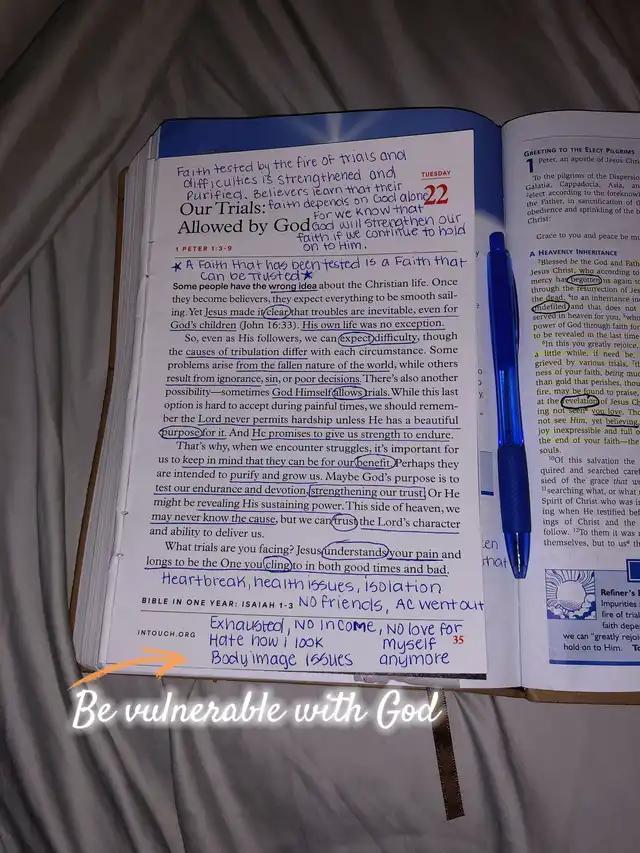 Faith tested by the fire of trials and
difficulties is strengthened and
Purified. Believers learn that their
faith depends on God alone
For we know that
God will strengthen our
faith if we continue to hold
on to Him.
TUESDAY
22
Our Trials:
Allowed by God
1 PETER 1:3-9
★ A Faith that has been tested is a Faith that
can be Trusted ★
Some people have the wrong idea about the Christian life. Once
they become believers, they expect everything to be smooth sail-
ing. Yet Jesus made it clear that troubles are inevitable, even for
God's children (John 16:33). His own life was no exception.
So, even as His followers, we can expect difficulty, though
the causes of tribulation differ with each circumstance. Some
problems arise from the fallen nature of the world, while others
result from ignorance, sin, or poor decisions. There's also another
possibility—sometimes God Himself allows trials. While this last
option is hard to accept during painful times, we should remem-
ber the Lord never permits hardship unless He has a beautiful
purpose for it. And He promises to give us strength to endure.
That's why, when we encounter struggles, it's important for
us to keep in mind that they can be for our benefit. Perhaps they
are intended to purify and grow us. Maybe God's purpose is to
test our endurance and devotion, strengthening our trust. Or He
might be revealing His sustaining power. This side of heaven, we
may never know the cause, but we can trust the Lord's character
and ability to deliver us.
What trials are you facing? Jesus understands your pain and
longs to be the One you cling to in both good times and bad.
Heartbreak, health issues, isolation
BIBLE IN ONE YEAR: ISAIAH 1-3
No friends, AC went out
INTOUCH.ORG
Exhausted, No income, No love for
Hate how i look myself
Body image issues anymore
35
Be vulnerable with God
GREETING TO THE ELECT PILGRIMS
1 Peter, an apostle of Jesus Chri
To the pilgrims of the Dispersio
Galatia, Cappadocia, Asia, an
elect according to the foreknow
the Father, in sanctification of t
obedience and sprinkling of the b
Christ:
Grace to you and peace be mu
A HEAVENLY INHERITANCE
3Blessed be the God and Fath
Jesus Christ, who according to
mercy has begotten us again to
through the resurrection of Jes
the dead, 4to an inheritance in
undefiled and that does not
served in heaven for you, 5who
power of God through faith for
to be revealed in the last time
6In this you greatly rejoice,
a little while, if need be,
grieved by various trials, 7th
ness of your faith, being muc
than gold that perishes, thou
fire, may be found to praise,
at the revelation of Jesus Ch
ing not seen you love. Tho
not see Him, yet believing,
joy inexpressible and full o
the end of your faith—the
souls.
10Of this salvation the
quired and searched caref
sied of the grace that w
11searching what, or what
Spirit of Christ who was in
ing when He testified befo
ings of Christ and the
follow. 12To them it was r
themselves, but to us
that
Refiner's
Impurities
fire of trial
faith depe
we can "greatly rejoi
hold on to Him.